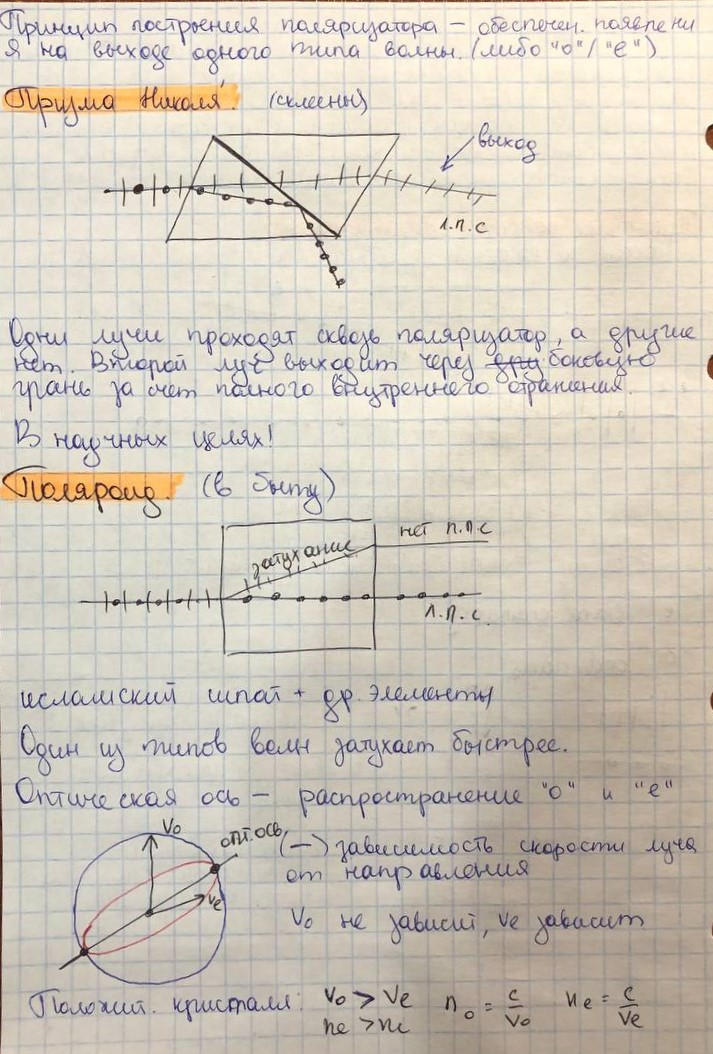 Принцип построения поляризатора – обеспечен. появлени
я на выходе одного типа волны. (либо "о" / "е")
Призма Николя. (склеены)
выход
л.п.с
Одни лучи проходят сквозь поляризатор, а другие
нет. Второй луч выходит через дру боковую
грань за счет полного внутреннего отражения.
В научных целях!
Поляроид. (в быту)
затухание
нет п.п.с
л.п.с.
исламский шпат + др. элементы
Один из типов волн затухает быстрее.
Оптическая ось – распространение "о" и "е"
Vo
опт.ось
Ve
(–) зависимость скорости луча
от направления
Vo не зависит, Ve зависит
Положит. кристалл: Vo > Ve no = c/Vo ne = c/Ve